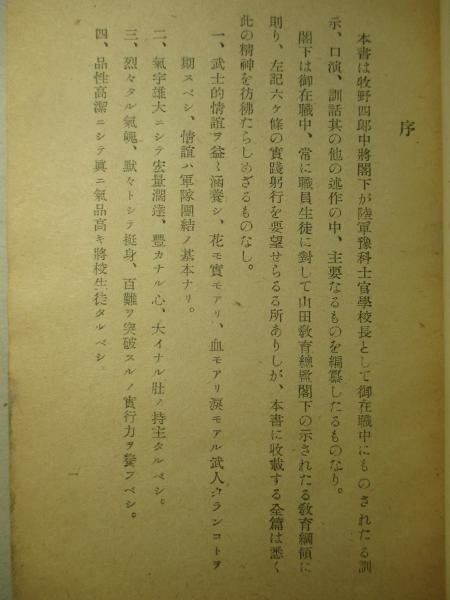 序
本書は牧野四郎中將閣下が陸軍豫科士官學校長として御在職中にものされたる訓
示、口演、訓話其の他の述作の中、主要なるものを編纂したるものなり。
閣下は御在職中、常に職員生徒に對して山田敎育總監閣下の示されたる敎育綱領に
則り、左記六ケ條の實踐躬行を要望せらるる所ありしが、本書に收載する全篇は悉く
此の精神を彷彿たらしめざるものなし。
一、武士的情誼ヲ益〻涵養シ、花モ實モアリ、血モアリ淚モアル武人タランコトヲ
期スベシ、情誼ハ軍隊團結ノ基本ナリ。
二、氣宇雄大ニシテ宏量濶達、豐カナル心、大イナル肚ノ持主タルベシ。
三、烈々タル氣魄、默々トシテ挺身、百難ヲ突破スルノ實行力ヲ養フベシ。
四、品性高潔ニシテ眞ニ氣品高キ將校生徒タルベシ。
一